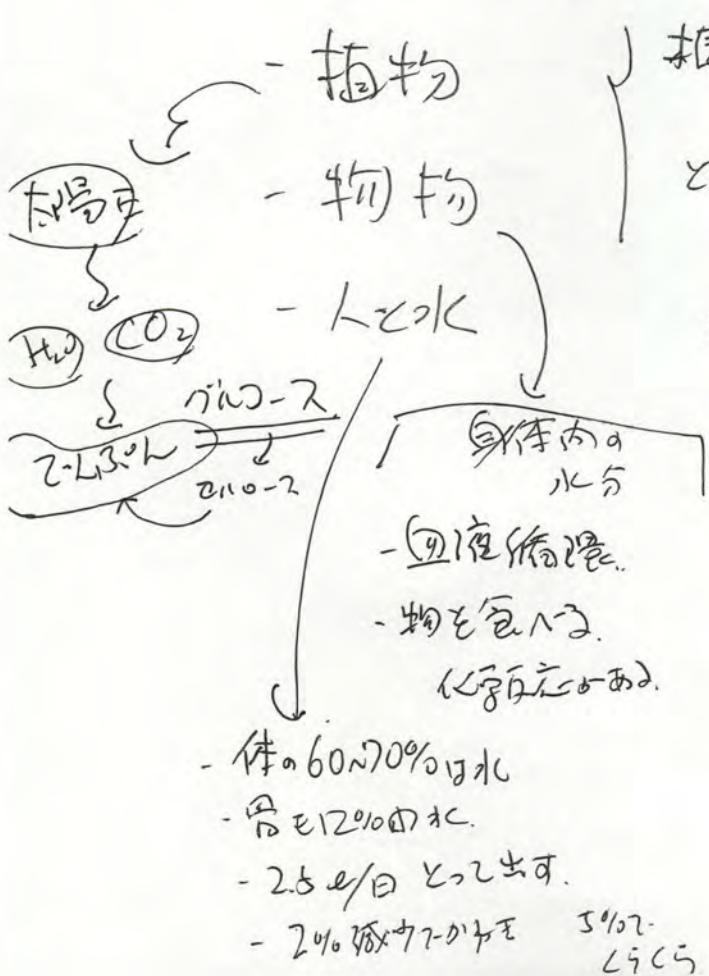 - 植物
- 物物
- 人と水
太陽
H₂O CO₂
グルコース
でんぷん
セルロース
身体内の
水分
- 血液循環
- 物を食べる
化学反応がある
- 体の60~70%は水
- 骨も12%の水
- 2.5ℓ/日 とって出す
- 2%減
5%で
くらくら